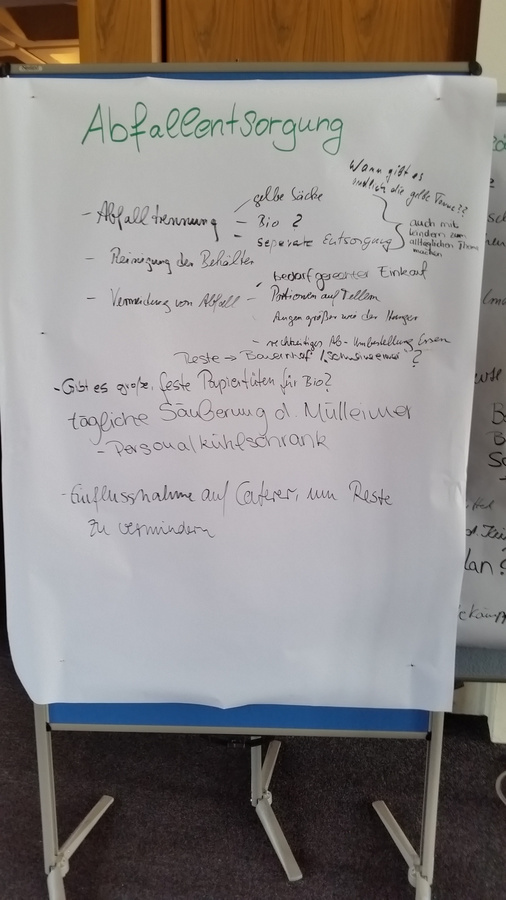 Abfallentsorgung
Wann gibt es
endlich die gelbe Tonne??
gelbe Säcke
- Abfalltrennung - Bio ?
- separate Entsorgung
auch mit
Kindern zum
alltäglichen Thema
machen
- Reinigung der Behälter
- bedarfgerechter Einkauf
- Vermeidung von Abfall - Portionen auf Tellern
Augen größer wie der Hunger
- rechtzeitiges Ab-Umbestellung Essen
Reste → Bauernhof / Schweineeimer ?
- Gibt es große, feste Papiertüten für Bio?
tägliche Säuberung d. Mülleimer
- Personalkühlschrank
- Einflussnahme auf Caterer, um Reste
zu vermindern
lan?